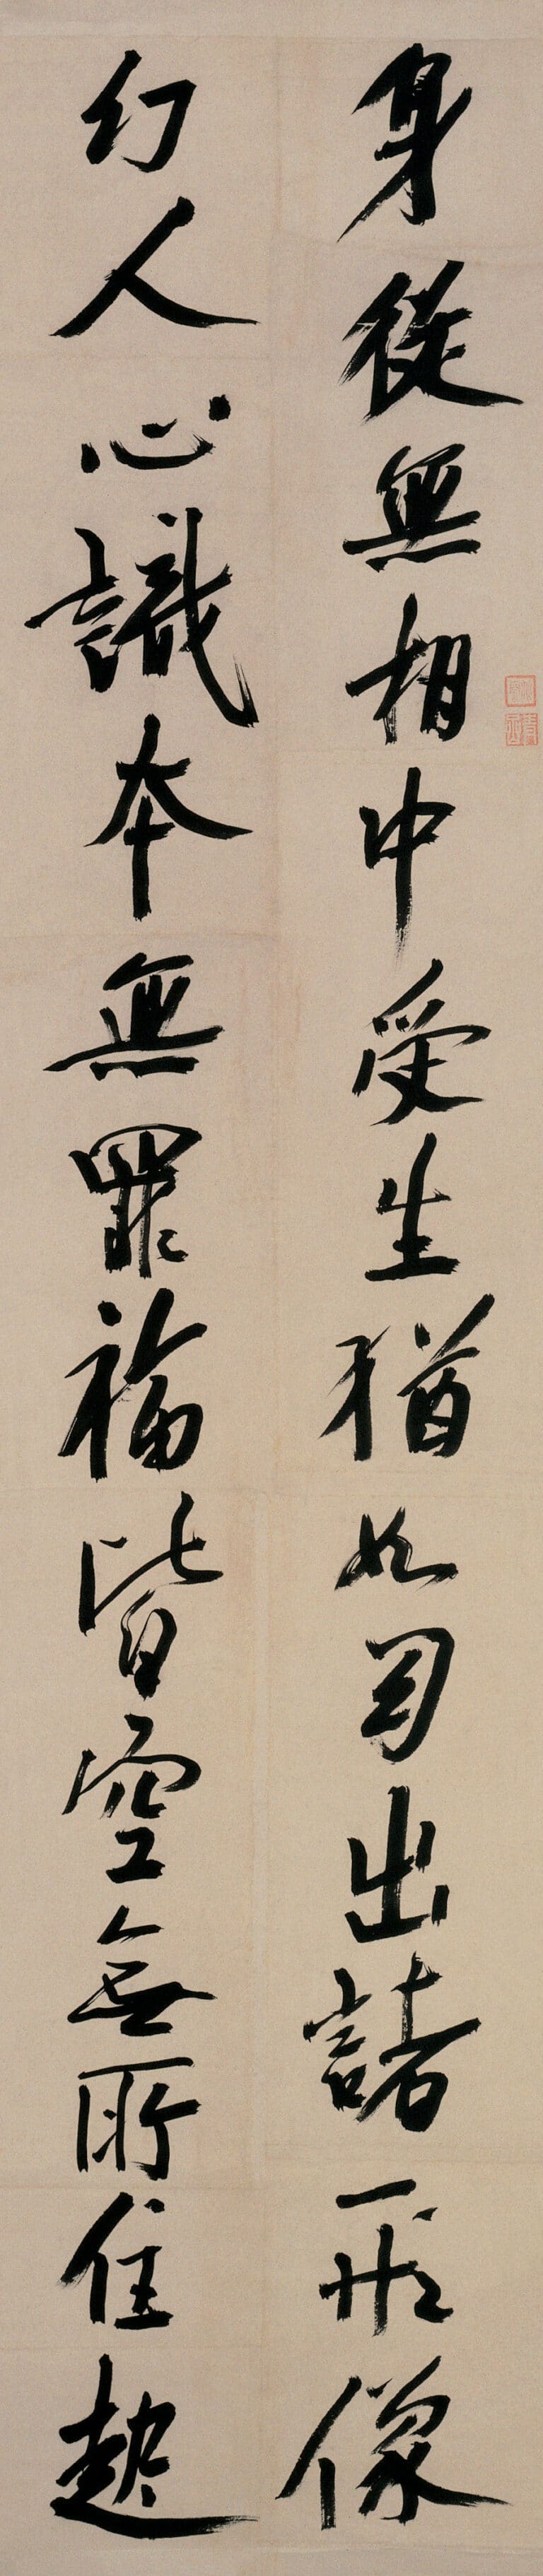 身從無相中受生猶如幻出諸形像
幻人心識本無罪福皆空無所住起